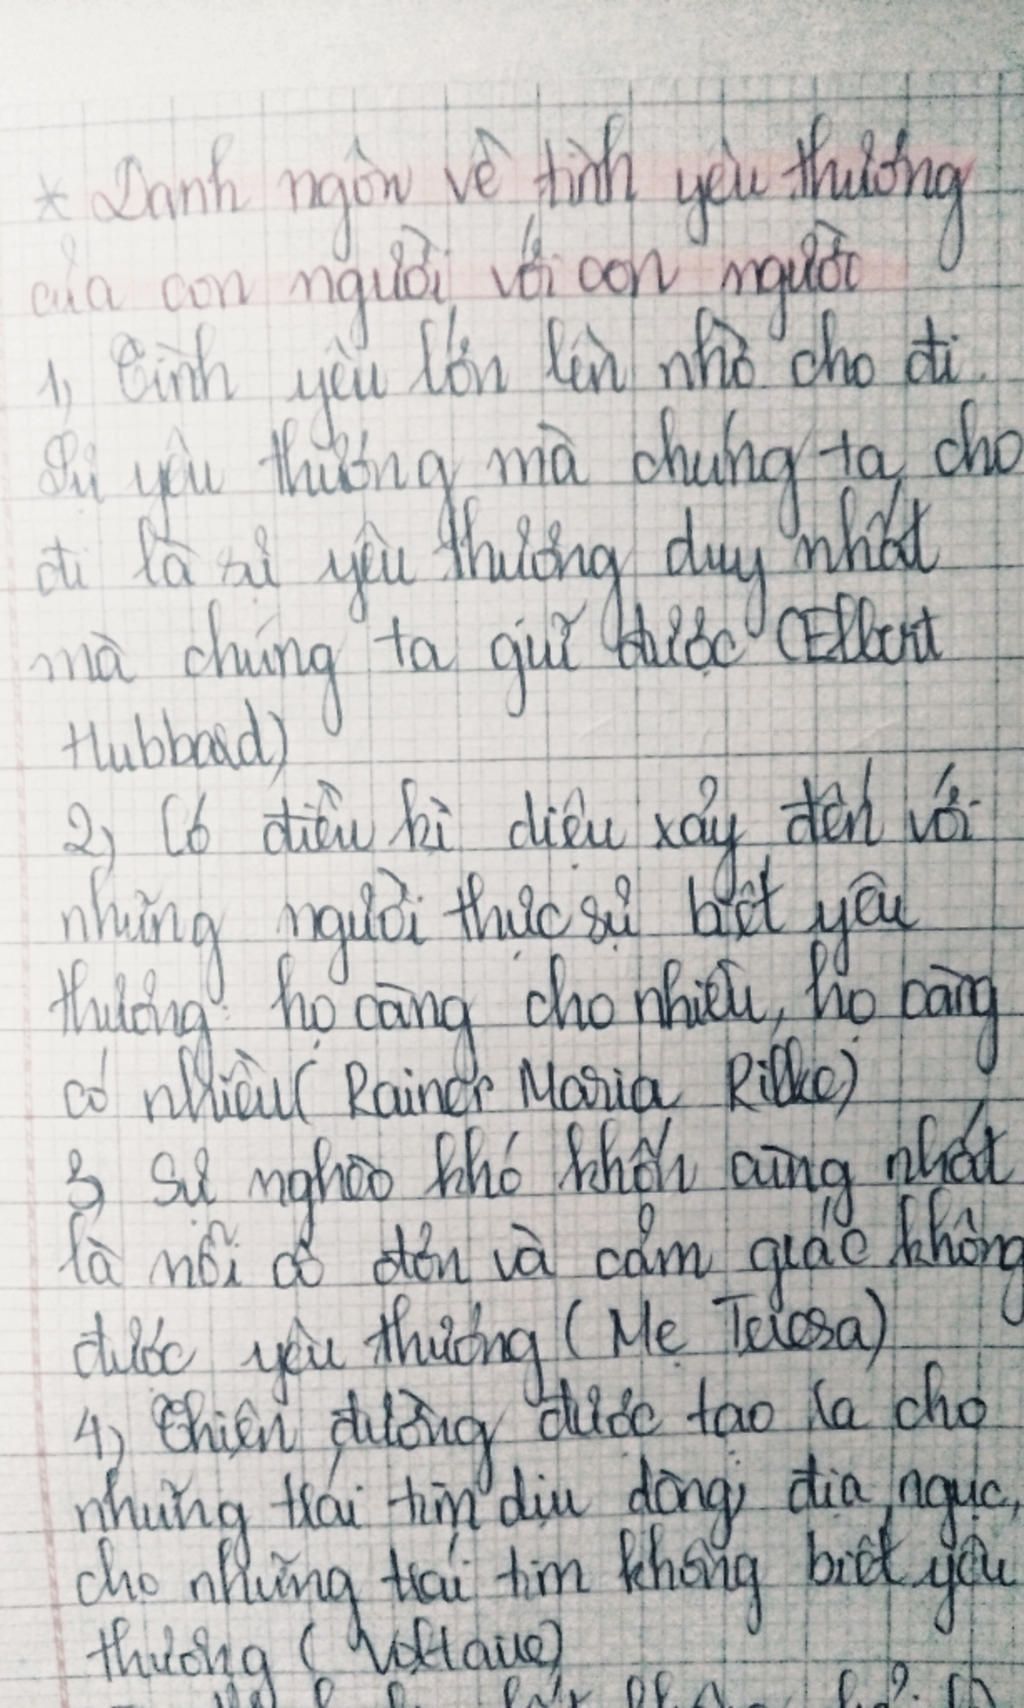 * Danh ngôn về tình yêu thương
của con người với con người
1, Tình yêu lớn lên nhờ cho đi.
Sự yêu thương mà chúng ta cho
đi là sự yêu thương duy nhất
mà chúng ta giữ được (Elbert
Hubbard)
2, Có điều kì diệu xảy đến với
những người thực sự biết yêu
thương: họ càng cho nhiều, họ càng
có nhiều (Rainer Maria Rilke)
3, Sự nghèo khó khốn cùng nhất
là nỗi cô đơn và cảm giác không
được yêu thương (Mẹ Teresa)
4, Thiên đường được tạo ra cho
những trái tim dịu dàng; địa ngục,
cho những trái tim không biết yêu
thương (Voltaire)